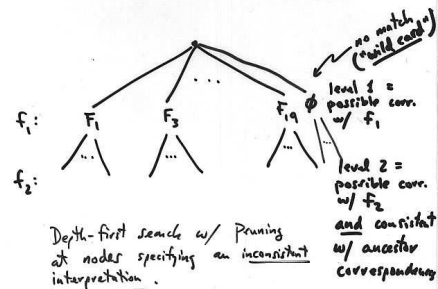 no match
("wild card")
. . .
level 1 =
possible corr.
w/ f₁
f₁:
F₁
F₃
F₁₉
φ
...
...
...
...
f₂:
level 2 =
possible corr.
w/ f₂
and consistent
w/ ancestor
correspondences
Depth-first search w/ Pruning
at nodes specifying an inconsistent
interpretation.